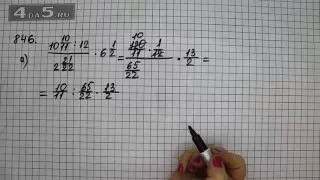 4DA5.RU
846.
а) (10 10/11 : 12)/(2 21/22) · 6 1/2 = (120/11 · 1/12)/(65/22) · 13/2 =
10
= 10/11 : 65/22 · 13/2